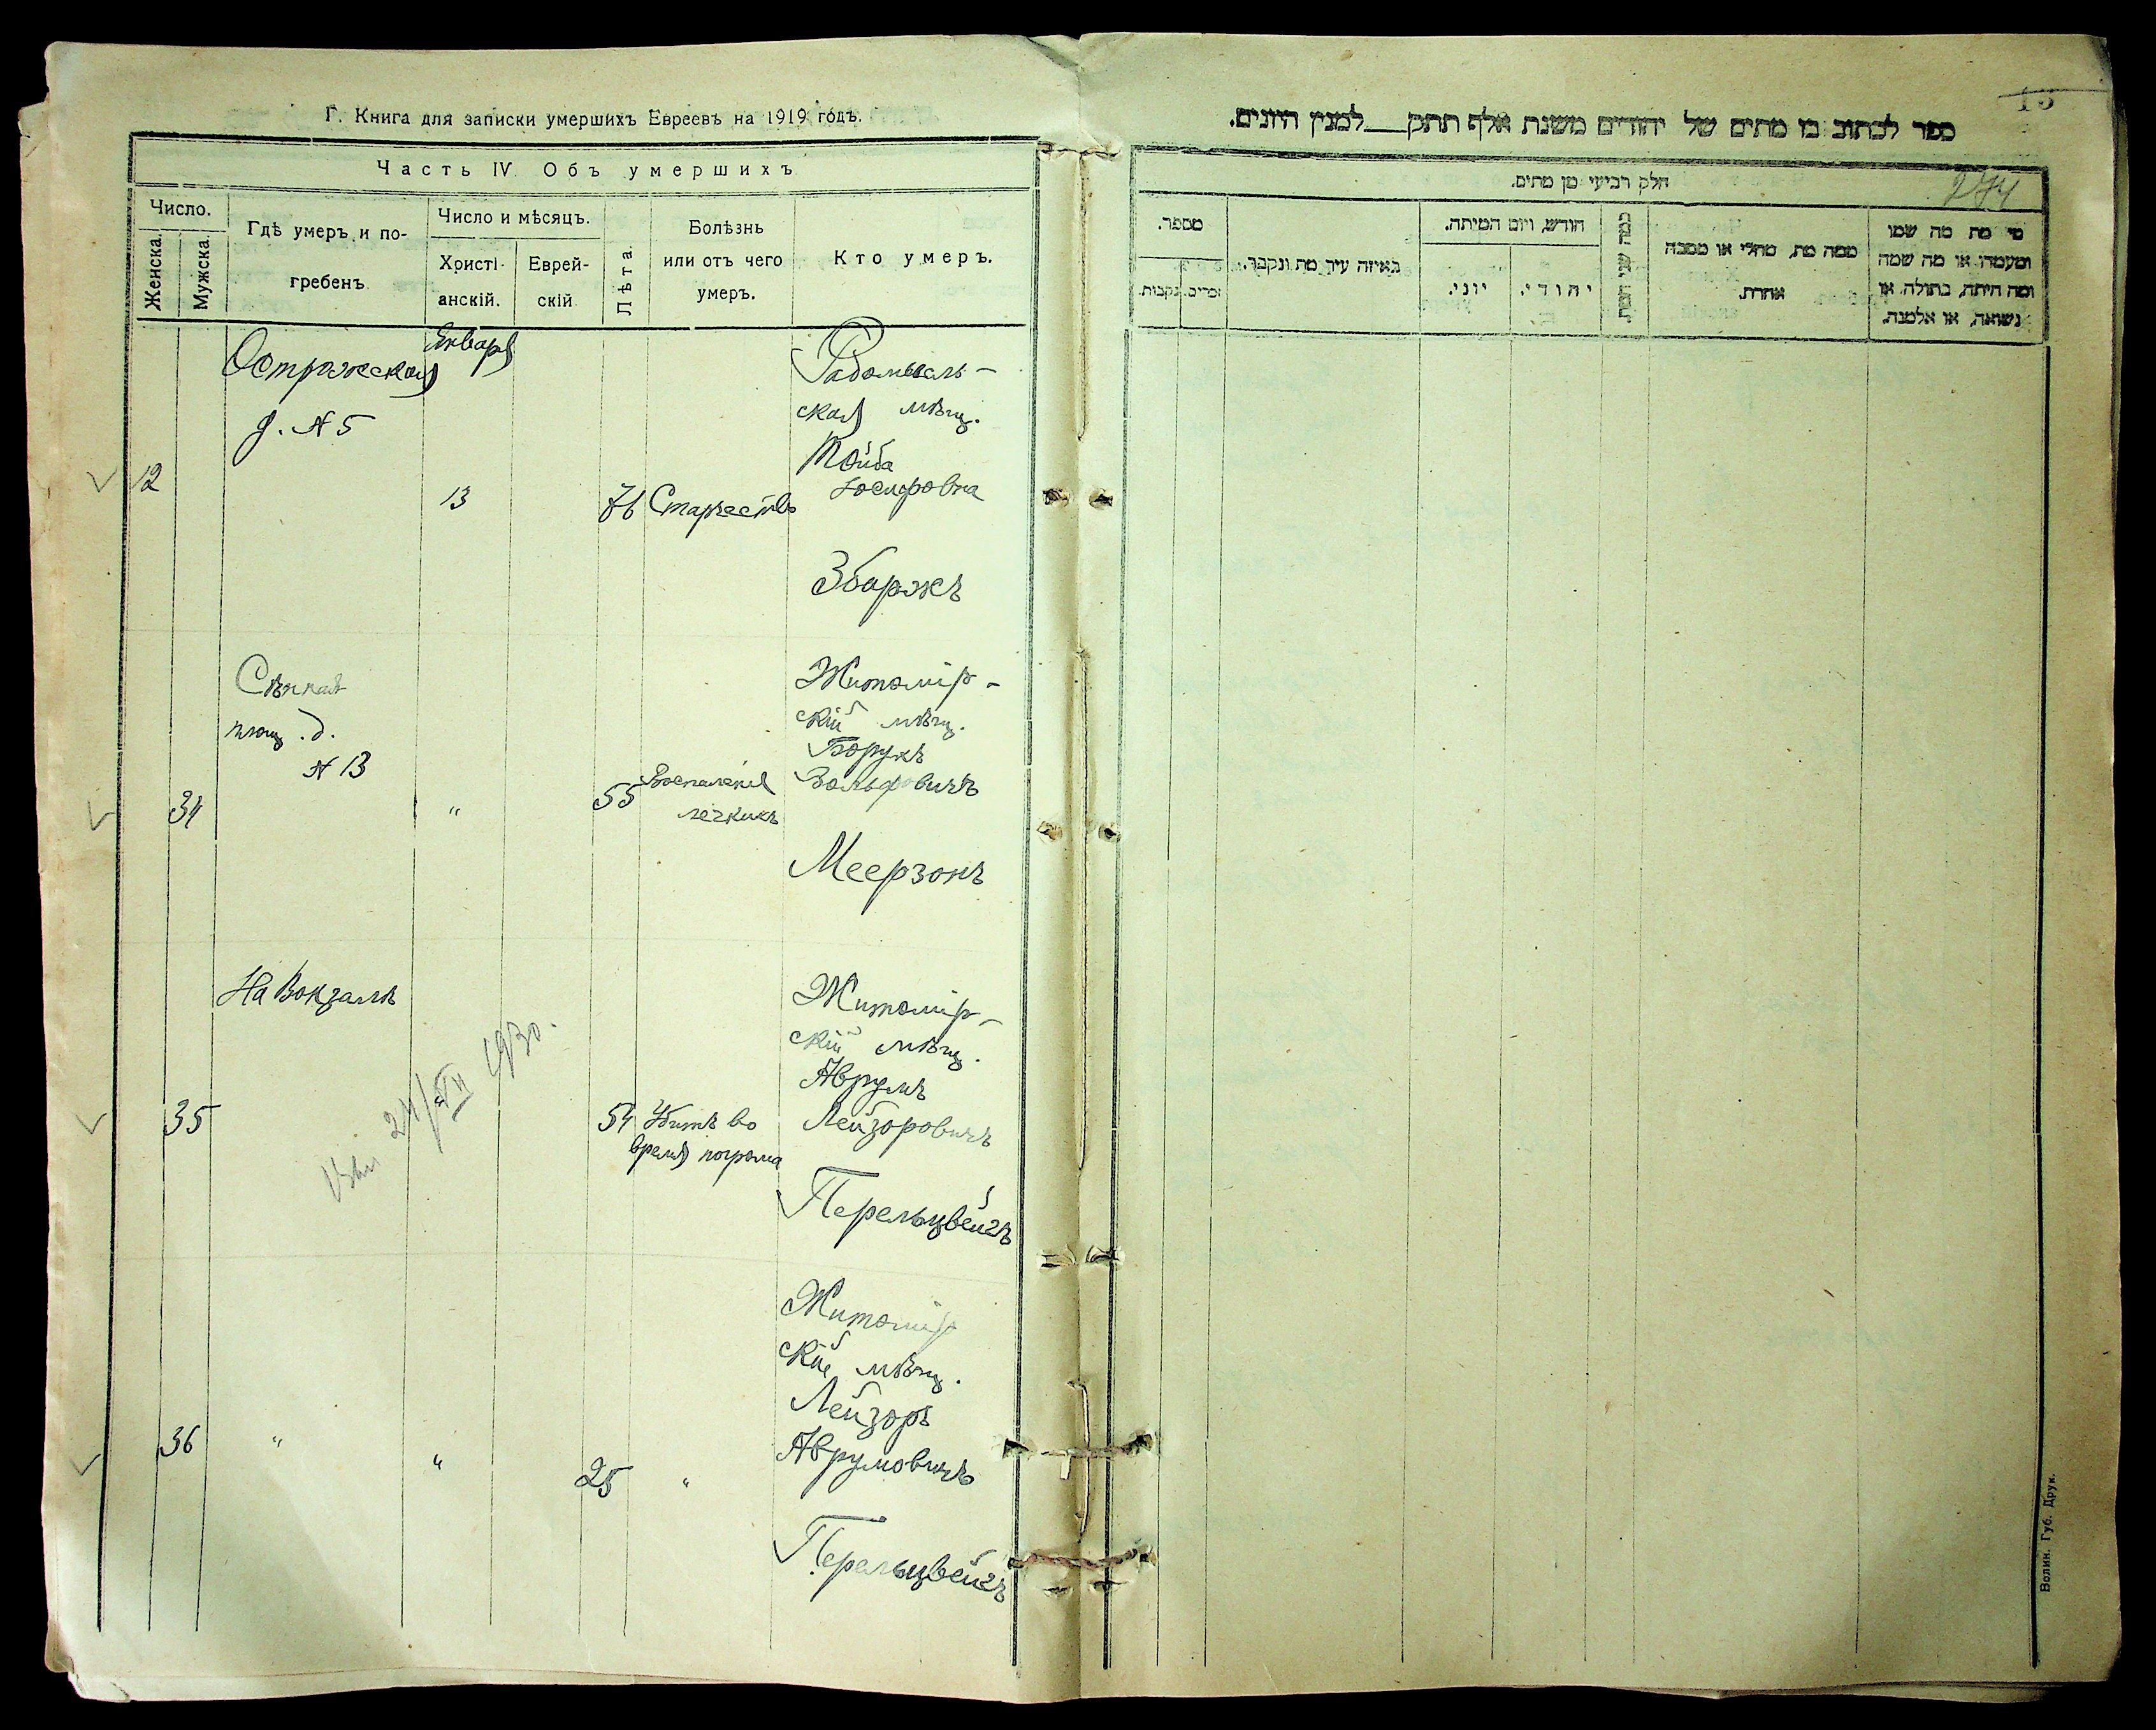 Г. Книга для записки умершихъ Евреевъ на 1919 годъ.
Часть IV Объ умершихъ
Число.
Женска.
Мужска.
Гдѣ умеръ и по-
гребенъ
Число и мѣсяцъ.
Христі-
анскій.
Еврей-
скій
Лѣта.
Болѣзнь
или отъ чего
умеръ.
Кто умеръ.
Января
Остражская
д. № 5
12
13
76
Старость
Радомысль-
ская мѣщ.
Тойба
Іосифовна
Збаржъ
Сѣнная
площ. д.
№ 13
34
"
55
Воспаленія
легкихъ
Житомір-
скій мѣщ.
Борухъ
Вольфовичъ
Меерзонъ
На Вокзалѣ
35
"
54
Убитъ во
время погрома
Житомір-
скій мѣщ.
Аврумъ
Лейзоровичъ
Перельцвейгъ
24/VII 1930.
36
"
"
25
"
Житомір
скій мѣщ.
Лейзоръ
Аврумовичъ
Перельцвейгъ
15
ספר לכתוב בו מתים של יהודים משנת אלף תתק___למנין היונים.
חלק רביעי מן מתים.
274
מספר.
זכרים.
נקבות.
באיזה עיר מת ונקבר.
חודש, ויום המיתה.
יוני.
יהודי.
כמה שני המת.
ממה מת, מחלי או מסבה
אחרת.
מי מת מה שמו
ומעמדו או מה שמה
ומה היתה, בתולה או
נשואה, או אלמנה.
Волин. Губ. Друк.